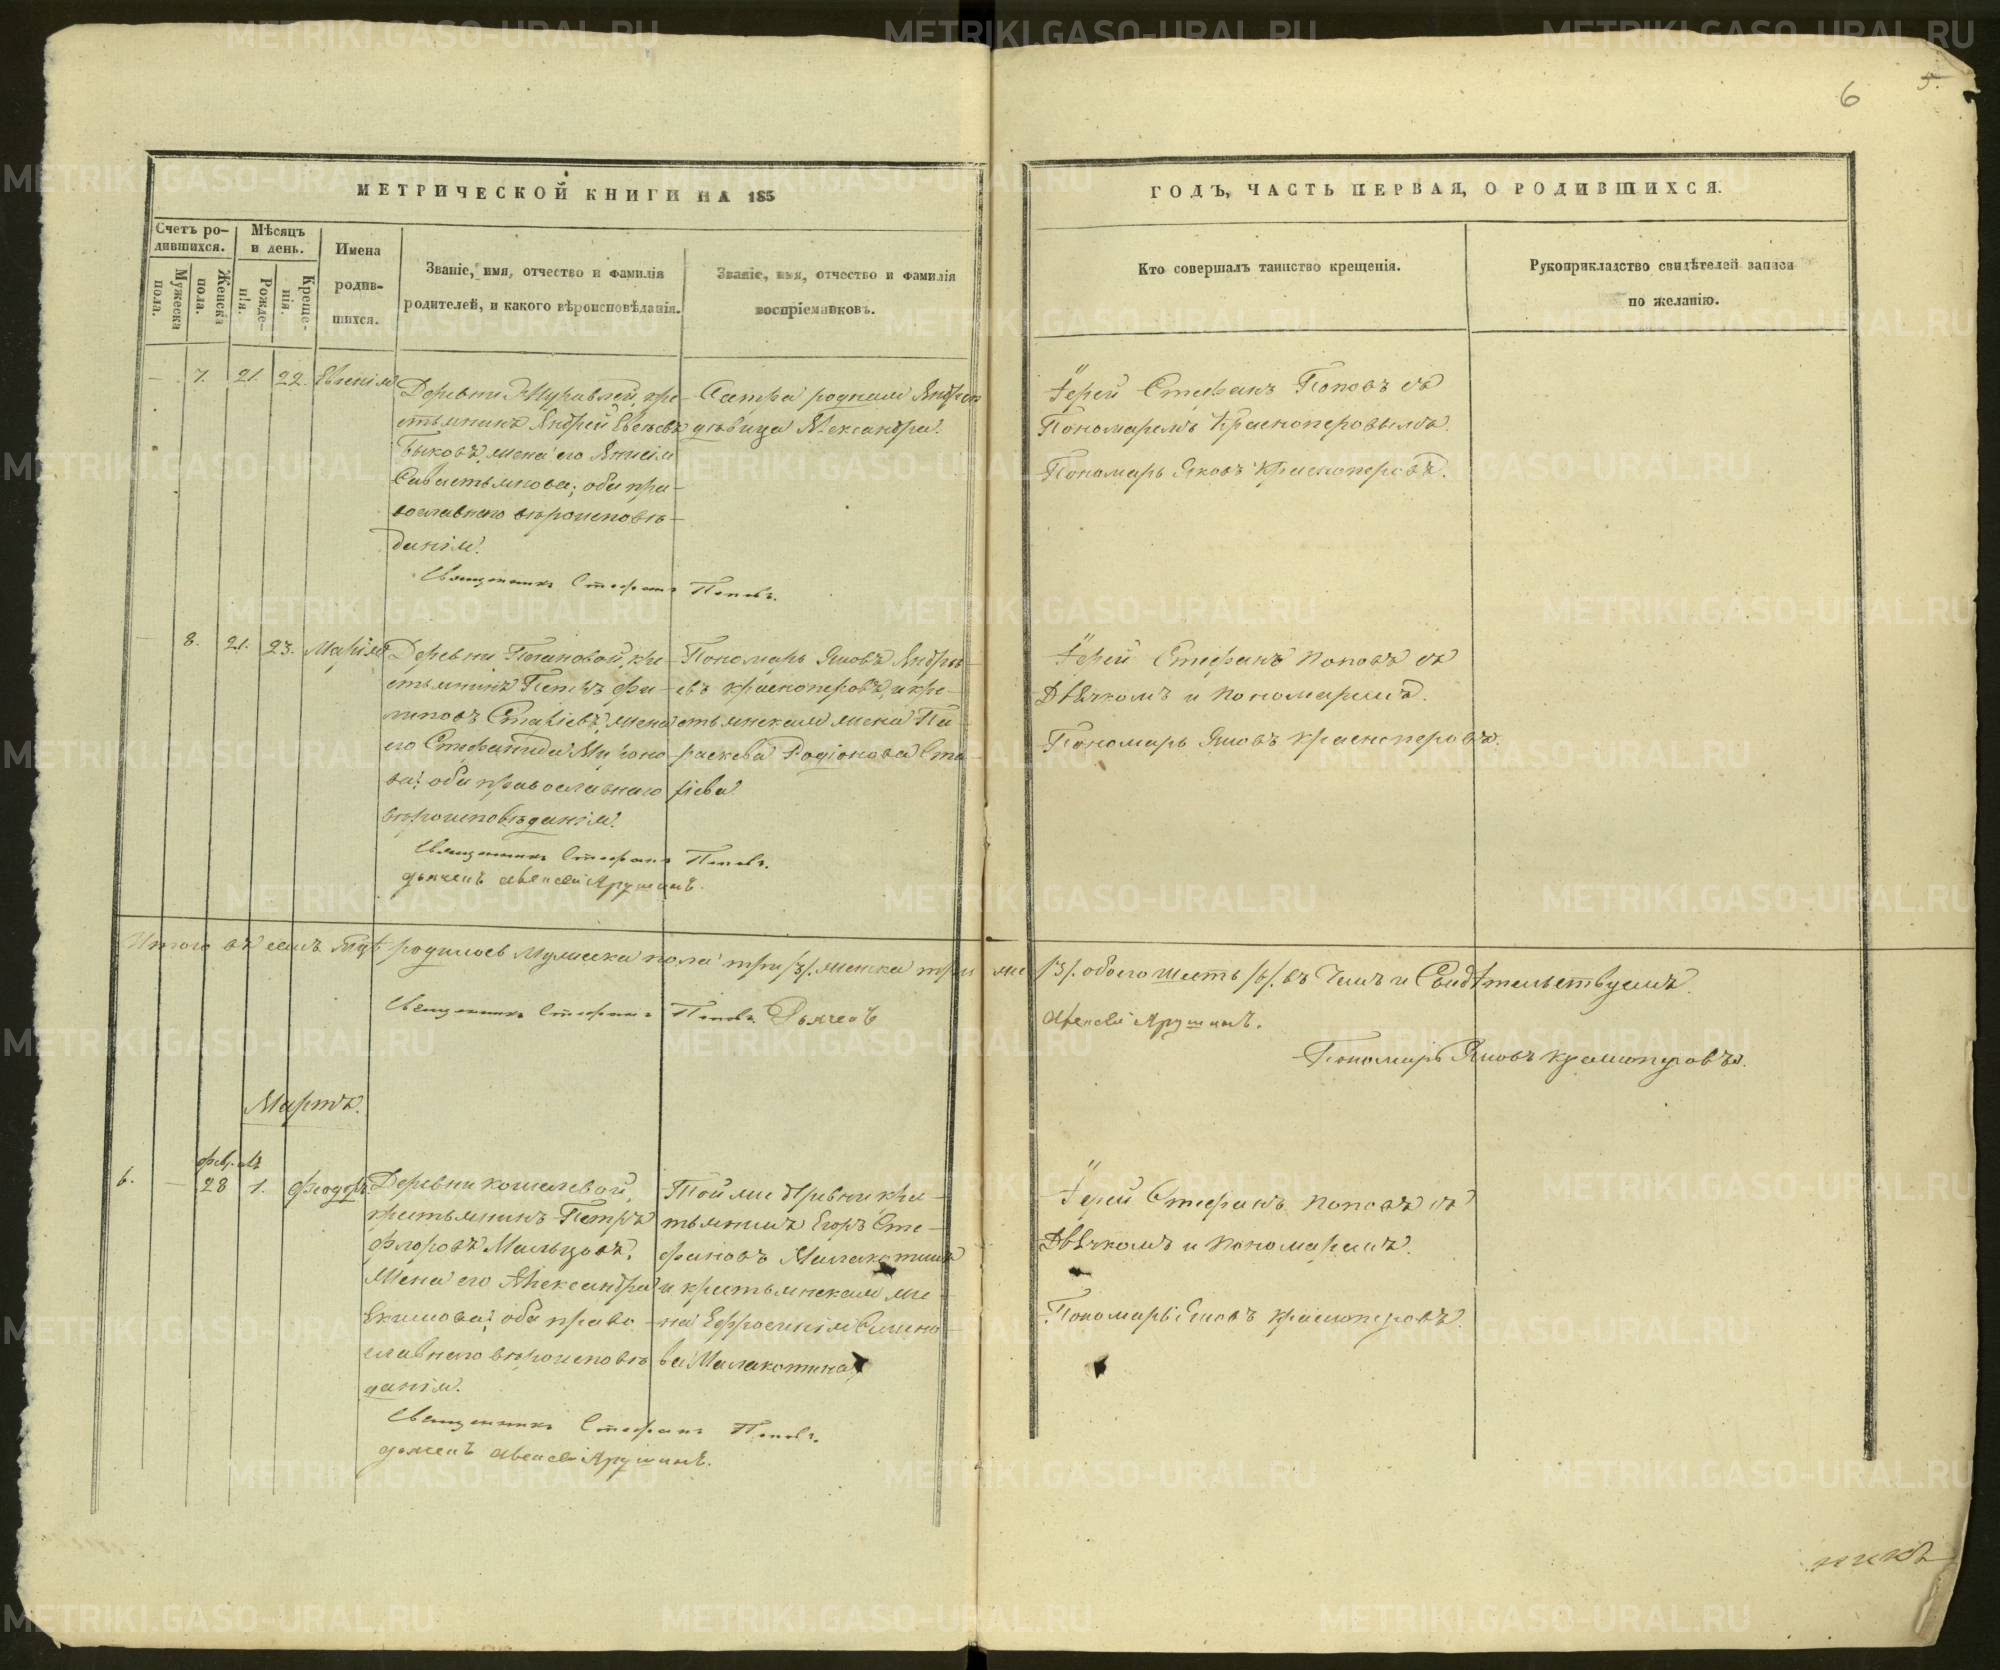 6
5.
МЕТРИЧЕСКОЙ КНИГИ НА 185
ГОДЪ, ЧАСТЬ ПЕРВАЯ, О РОДИВШИХСЯ.
Счетъ родившихся.
Мужеска пола.
Женска пола.
Мѣсяцъ и день.
Рожденія.
Крещенія.
Имена родившихся.
Званіе, имя, отчество и фамилія
родителей, и какого вѣроисповѣданія.
Званіе, имя, отчество и фамилія
воспріемниковъ.
Кто совершалъ таинство крещенія.
Рукоприкладство свидѣтелей записи
по желанію.
7. 21. 22. Евгенія
Деревни Журавлей, кре-
стьянинъ Андрей
Быковъ, жена его
Савастьянова; оба пра-
вославнаго вѣроисповѣ-
данія.
Священникъ Стефанъ Поповъ.
Сестра родная
дѣвица Александра.
Іерей Стефанъ Поповъ съ
Пономаремъ Красноперовымъ.
Пономарь Яковъ Красноперовъ.
8. 21. 23. Марія
Деревни Потановой, кре-
стьянинъ Петръ Фи-
липовъ Стахіевъ, жена
его Стефанида Миронова; оба православнаго
вѣроисповѣданія.
Священникъ Стефанъ Поповъ.
Дьячекъ Арушинъ.
Пономарь Яковъ Андре-
евъ Красноперовъ, и кре-
стьянская жена Па-
раскева Родіонова Ста-
хіева.
Іерей Стефанъ Поповъ съ
Дьячкомъ и Пономаремъ.
Пономарь Яковъ Красноперовъ.
Итого въ семъ родилось Мужеска пола три /3/. женска три /3/. обоего шесть /6/. въ чемъ и Свидѣтельствуемъ.
Священникъ Стефанъ Поповъ. Дьячекъ
Арушинъ.
Пономарь Яковъ Красноперовъ.
Мартъ.
6. Фев. 28 М. 1. Феодоръ
Деревни Кошелевой,
крестьянинъ Петръ
Флоровъ Мальцовъ,
Жена его Александра
Екимова; оба право-
славнаго вѣроисповѣ-
данія.
Священникъ Стефанъ Поповъ.
Дьячекъ Арушинъ.
Той же деревни кре-
стьянинъ Егоръ Сте-
фановъ Малакотинъ
и крестьянская же-
на Ефросинія
Малакотина
Іерей Стефанъ Поповъ съ
Дьячкомъ и Пономаремъ.
Пономарь Яковъ Красноперовъ.
METRIKI.GASO-URAL.RU